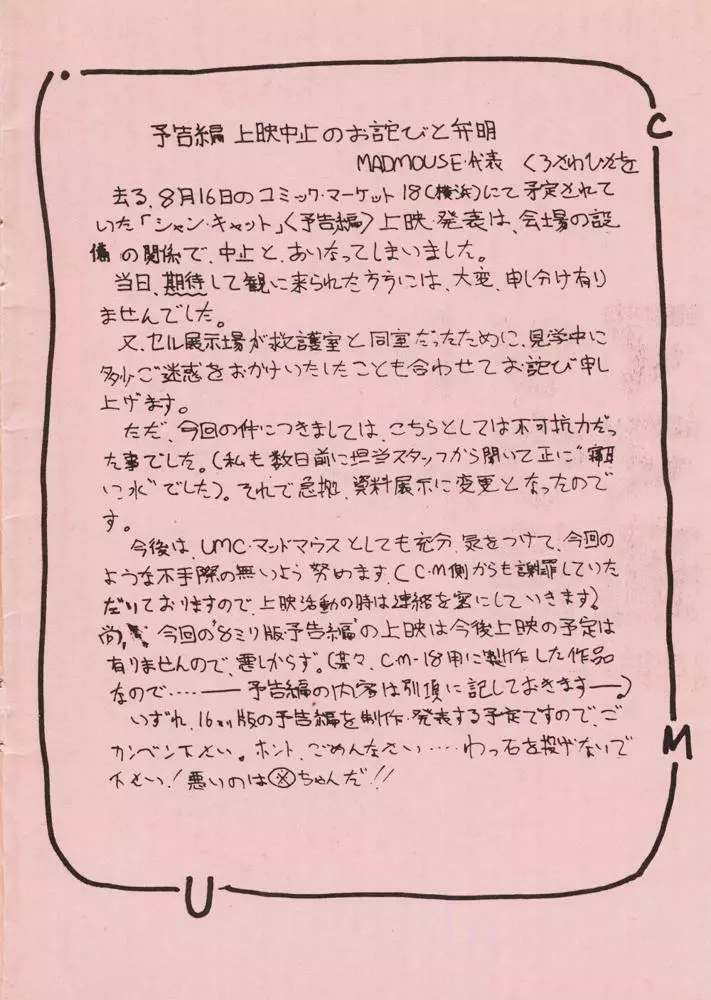 予告編 上映中止のお詫びと弁明
MADMOUSE・代表 くろさわひさを
去る、8月16日のコミック・マーケット18(横浜)にて予定されて
いた「シャン・キャット」〈予告編〉上映・発表は、会場の設
備の関係で、中止と、あいなってしまいました。
当日、期待して観に来られた方々には、大変、申し分け有り
ませんでした。
又、セル展示場が救護室と同室だったために、見学中に
多少ご迷惑をおかけいたしたことも合わせてお詫び申し
上げます。
ただ、今回の件につきましては、こちらとしては不可抗力だっ
た事でした。(私も数日前に担当スタッフから聞いて正に"寝耳
に水"でした)。それで急拠、資料展示に変更となったので
す。
今後は、UMC・マッドマウスとしても充分、気をつけて、今回の
ような不手際の無いよう努めます、(C・M側からも謝罪していた
だいておりますので、上映活動の時は連絡を密にしていきます)
尚、今回の"8ミリ版・予告編"の上映は今後上映の予定は
有りませんので、悪しからず。(某々、CM-18用に製作した作品
なので……―― 予告編の内容は別項に記しておきます――。)
いずれ、16ミリ版の予告編を制作・発表する予定ですので、ご
カンベン下さい。ホント、ごめんなさい……わっ石を投げないで
下さい!悪いのは○×ちゃんだ!!
C
M
U